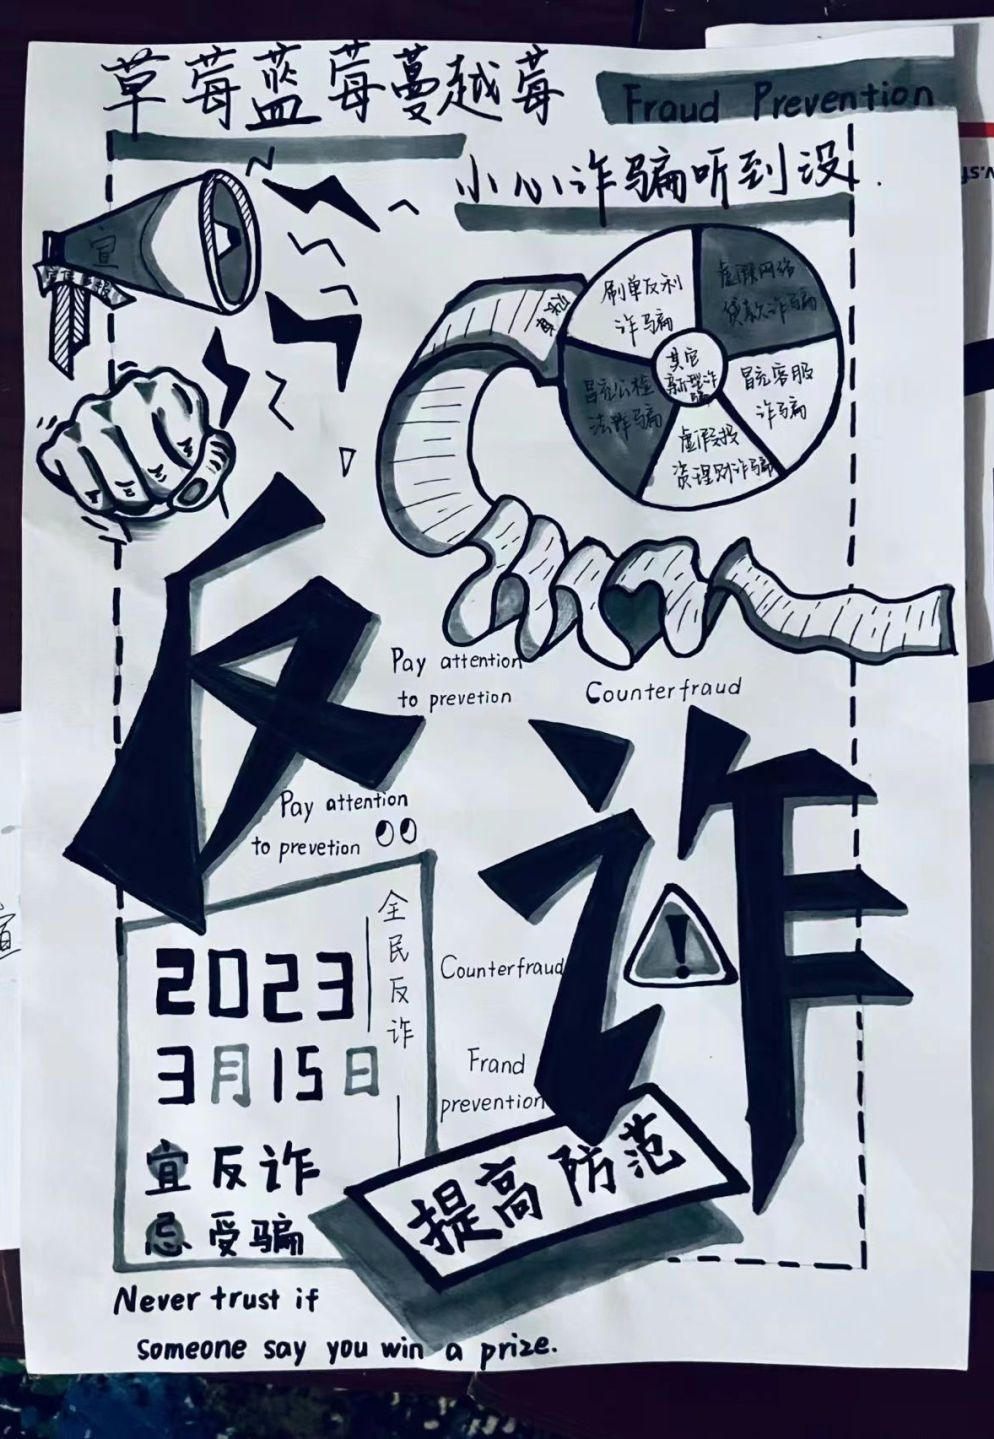 草莓蓝莓蔓越莓
Fraud Prevention
小心诈骗听到没
宣
刷单反利
诈骗
虚假网络
贷款诈骗
冒充公检
法诈骗
其它
新型诈
骗
冒充客服
诈骗
虚假投
资理财诈骗
反
诈
Pay attention
to prevetion
Counterfraud
Pay attention
to prevetion
全民反诈
2023
3月15日
宜反诈
忌受骗
Counterfraud
Frand
prevention
!
提高防范
Never trust if
someone say you win a prize.